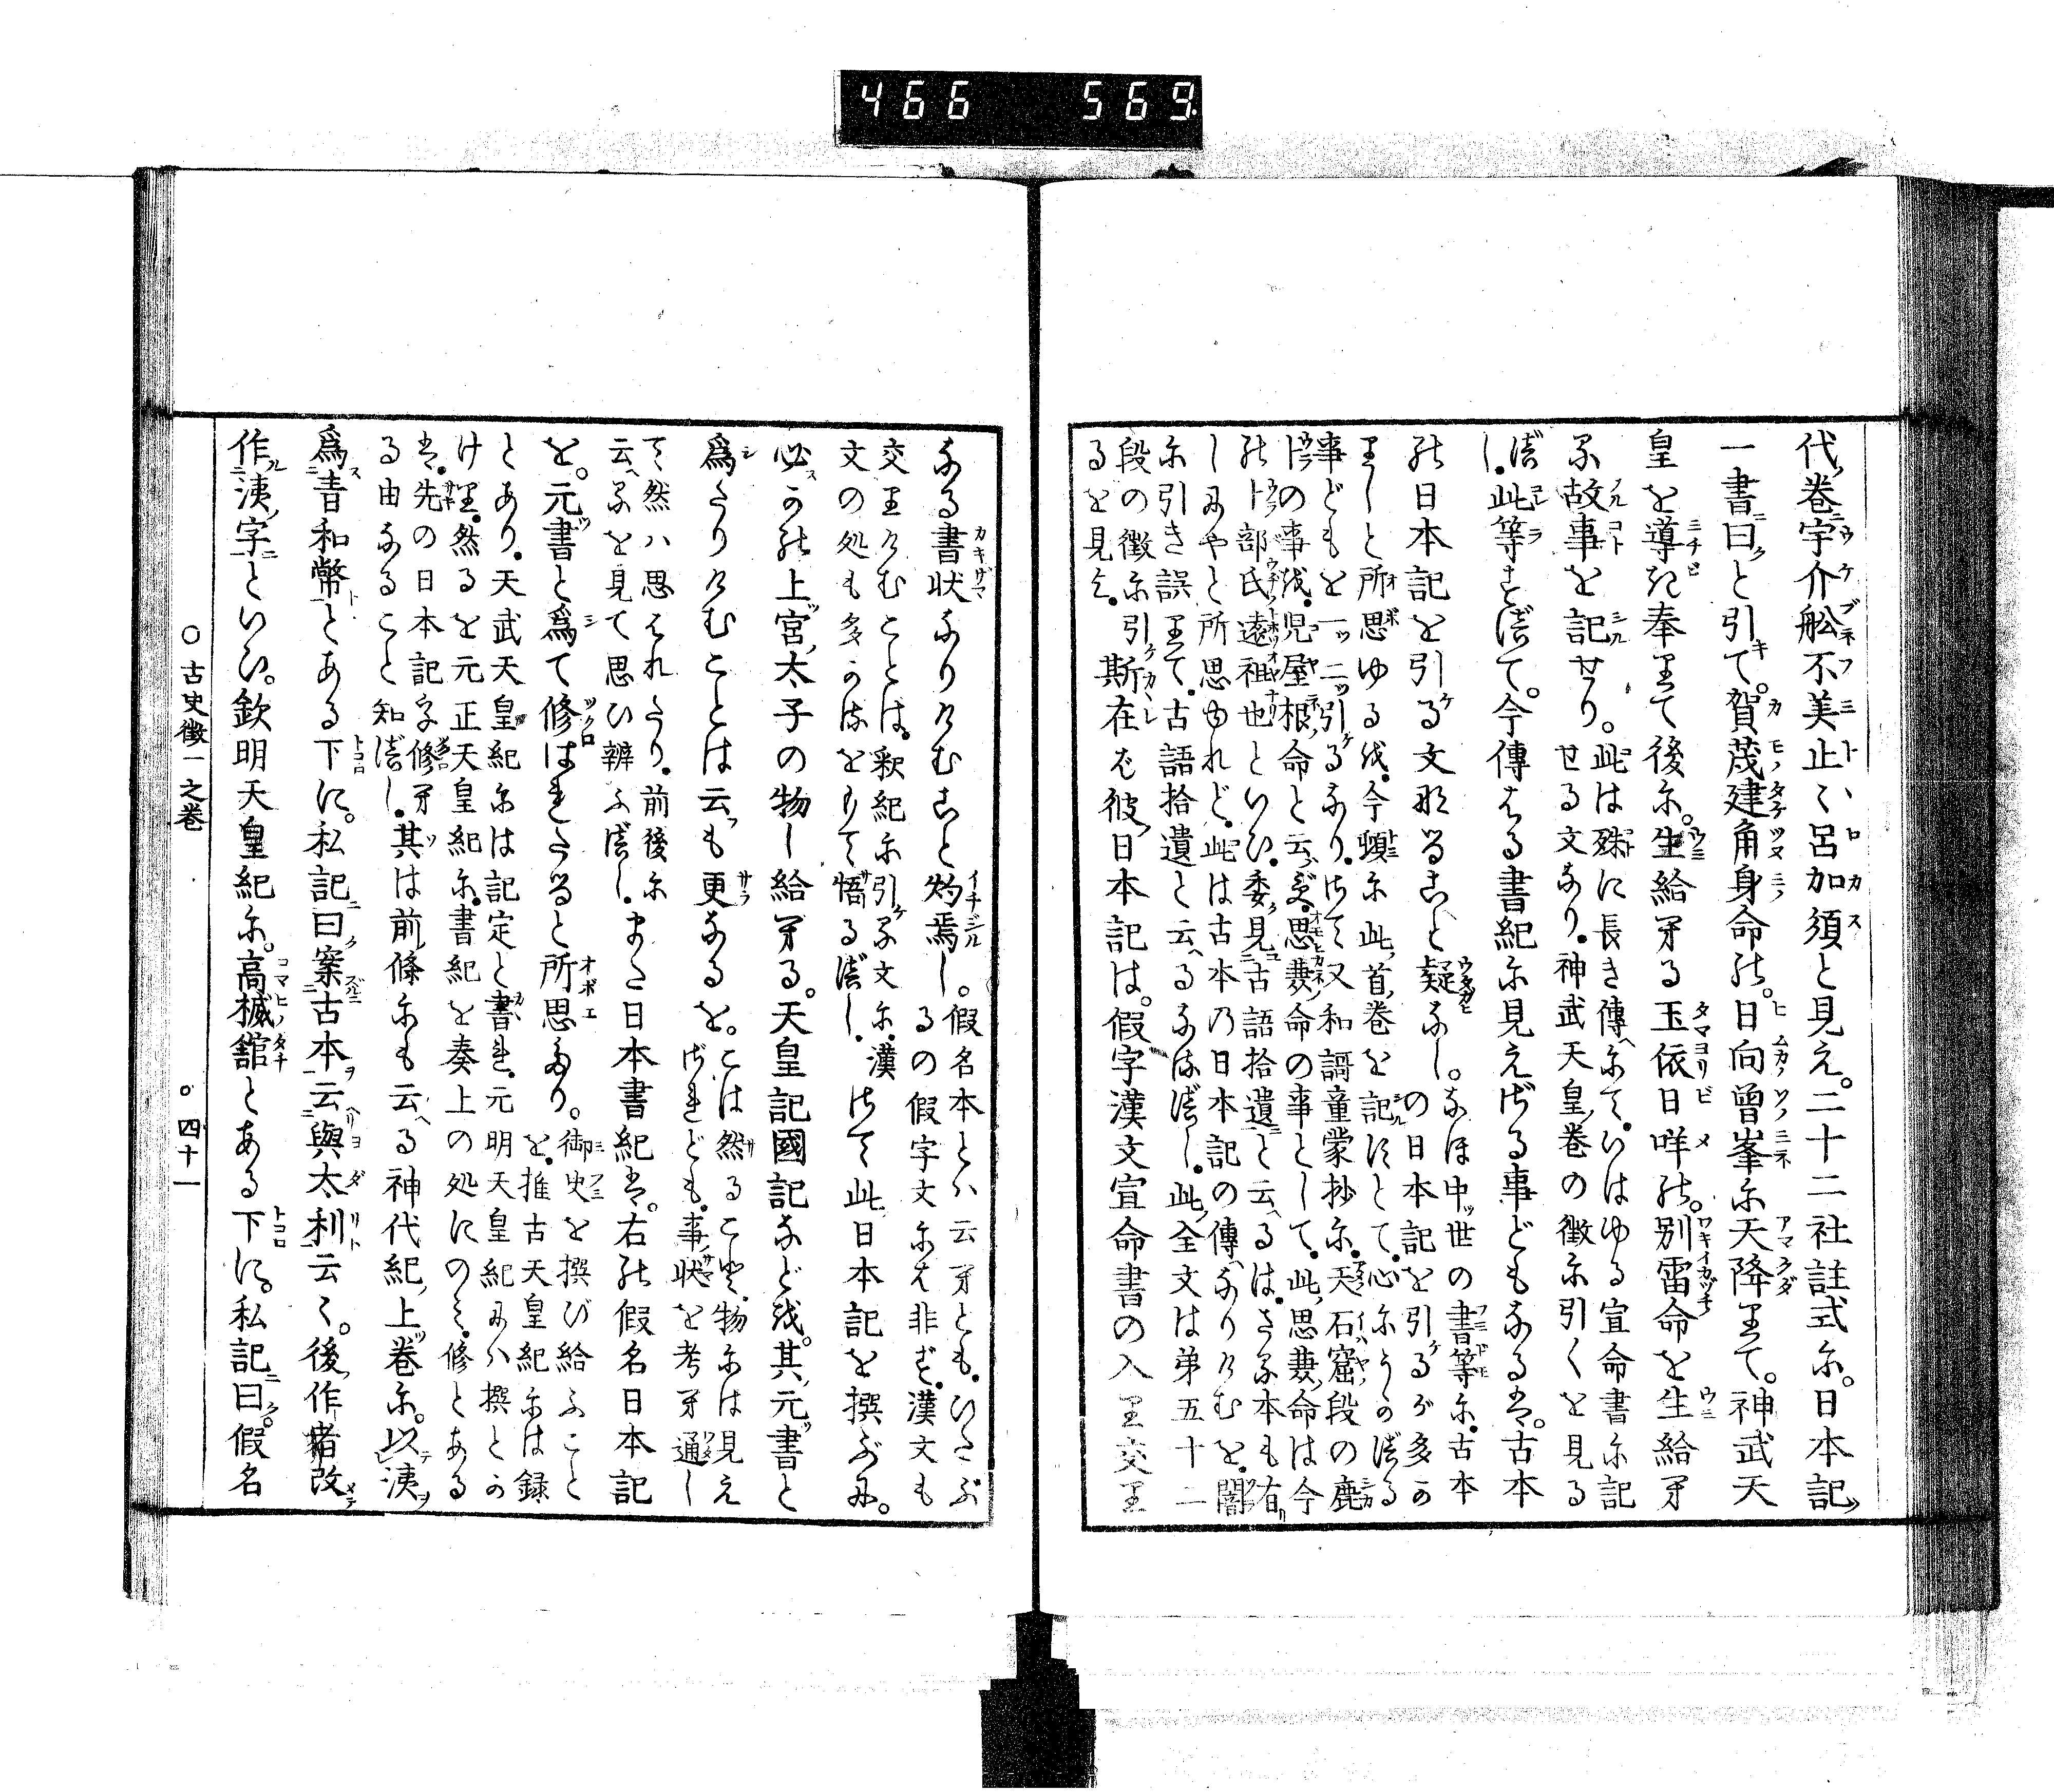 466 569
代巻宇介船不美止々呂加須と見え。二十二社註式尓。日本記
一書曰と引て。賀茂建角身命能。日向曽峯尓天降里て。神武天
皇を導き奉里て後尓。生給牟る玉依日咩能。別雷命を生給牟
る故事を記せり。
此は殊に長き傳にて。いはゆる宣命書尓記
せる文なり。神武天皇巻の徴尓引くを見る
べし。
此等をべて。今傳はる書紀尓見えざる事どもなるを。古本
能日本記を引る文なることと疑なし。
なほ中世の書等尓。古本
の日本記を引るが多か
里しと所思ゆるを。今頭尓此首巻を記すとて。心尓うかべる
事どもを一二引るなり。さて又和謌童蒙抄尓。天石窟段の鹿
卜の事を。児屋根命と云ず。思兼命の事として。此思兼命は今
能卜部氏遠祖也といひ。委見古語拾遺と云るは。さる本も有
しにやと所思ゆれど。此は古本乃日本記の傳なりけむを。闇
尓引き誤里て。古語拾遺と云るなるべし。此全文は第五十二
段の徴尓引
るを見よ。
斯在ば彼日本記は。假字漢文宣命書の入里交里
なる書状なりけむこと灼焉し。
假名本とハ云牟とも。ひたぶ
るの假字文尓は非ず。漢文も
交里けむことは。釈紀尓引る文尓。漢
文の処も多かるをもて悟るべし。
さて此日本記を撰ぶに。
必かの上宮太子の物し給牟る。天皇記國記などを。其元書と
為たりけむことは云も更なるを。
こは然ること。物尓は見え
ざれども。事状を考牟通し
て然ハ思はれたり。前後尓
云るを見て思ひ辨ふべし。
また日本書紀を。右能假名日本記
を。元書と為て修はまたると所思なり。
御史を撰び給ふこと
を。推古天皇紀尓は録
とあり。天武天皇紀尓は記定と書れ。元明天皇紀にハ撰とか
け里。然るを元正天皇紀尓。書紀を奏上の処にのみ。修とある
は。先の日本記を修牟
る由なること知べし。
其は前條尓も云る神代紀上巻尓。以洟
為青和幣とある下に。私記曰案古本云與太利云々。後作者改
作洟字といひ。欽明天皇紀尓。高楲舘とある下に。私記曰。假名
○古史徴一之巻 ○四十一